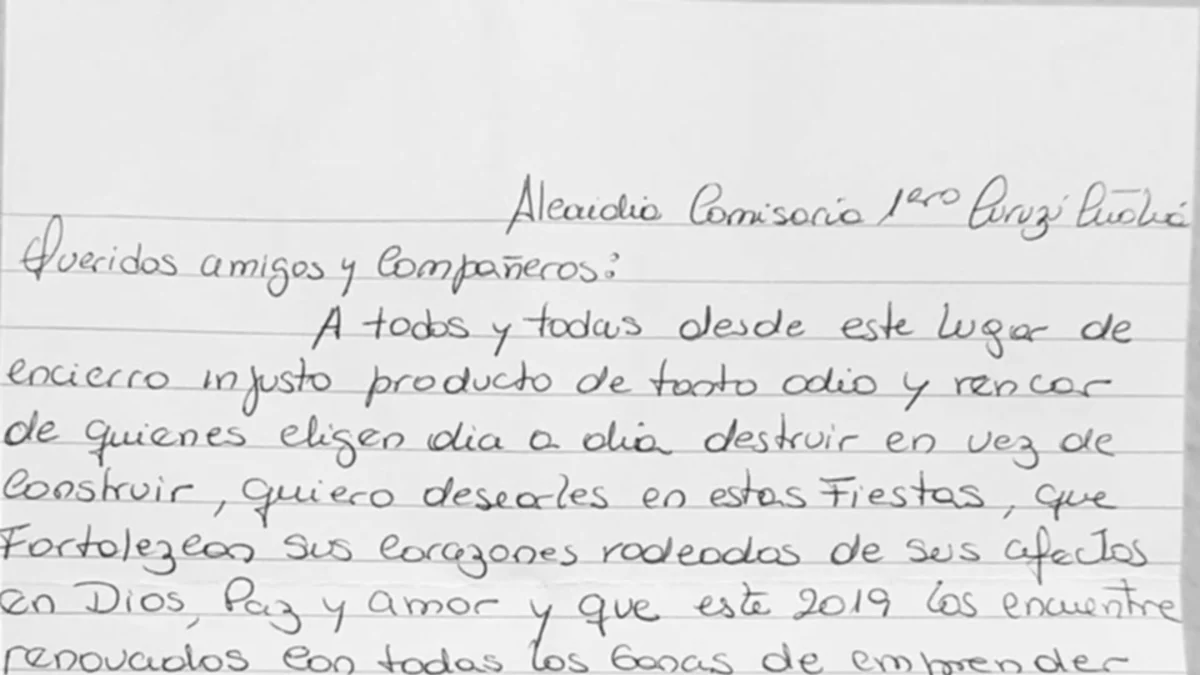 Alcaidia Comisaria 1ero Curuzú Cuatiá
Queridos amigos y Compañeros:
A todos y todas desde este lugar de
encierro injusto producto de tanto odio y rencor
de quienes eligen dia a dia destruir en vez de
Construir, quiero desearles en estas Fiestas, que
Fortalezcan sus corazones rodeados de sus afectos
en Dios, Paz y amor y que este 2019 los encuentre
renovados con todas las Ganas de emprender